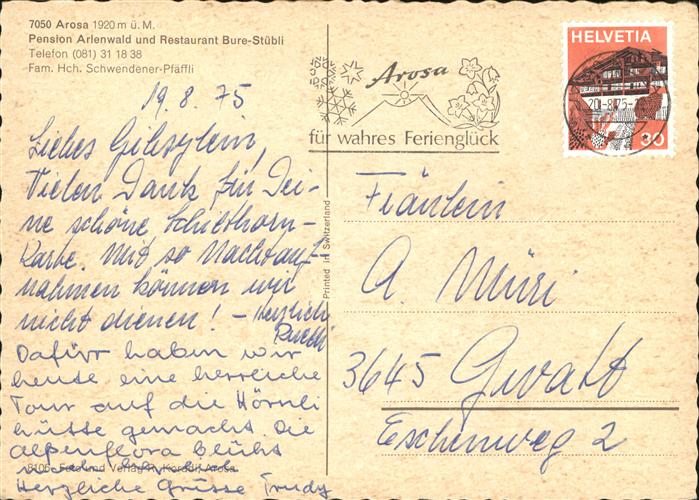 7050 Arosa 1920 m ü. M.
Pension Arlenwald und Restaurant Bure-Stübli
Telefon (081) 31 18 38
Fam. Hch. Schwendener-Pfäffli
19. 8. 75
Liebes
Vielen Dank für Dei-
ne schöne Schilthorn-
Karte. Mit so Nachtauf-
nahmen können wir
nicht dienen! - Herzlich
Ruedi
Dafür haben wir
heute eine herrliche
Tour auf die Hörnli
hütte gemacht. Die
alpenflora blüht
Herzliche Grüsse Trudy
8106 Foto und Verlag Arosa
Printed in Switzerland
Arosa
für wahres Ferienglück
HELVETIA
30
20.-8.75-
Fräulein
A. Müri
3645 Gwatt
Eschenweg 2